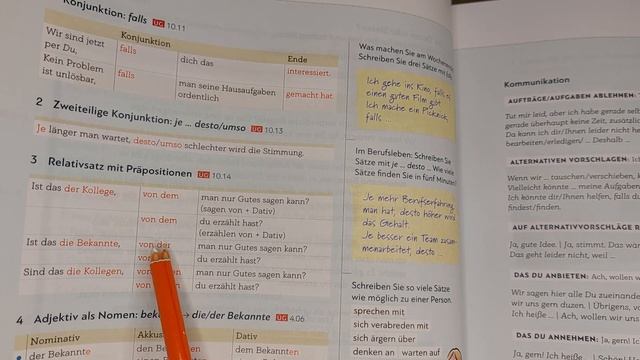 Konjunktion: falls UG 10.11
Konjunktion Ende
Wir sind jetzt per Du, falls dich das interessiert.
Kein Problem ist unlösbar, falls man seine Hausaufgaben ordentlich gemacht hat.
2 Zweiteilige Konjunktion: je ... desto/umso UG 10.13
Je länger man wartet, desto/umso schlechter wird die Stimmung.
3 Relativsatz mit Präpositionen UG 10.14
Ist das der Kollege, von dem man nur Gutes sagen kann?
(sagen von + Dativ)
von dem du erzählt hast?
(erzählen von + Dativ)
Ist das die Bekannte, von der man nur Gutes sagen kann?
du erzählt hast?
Sind das die Kollegen, man nur Gutes sagen kann?
du erzählt hast?
4 Adjektiv als Nomen: die/der Bekannte UG 4.06
Nominativ Dativ
der Bekannte dem Bekannten
Was machen Sie am
Schreiben Sie drei Sätze mit
Ich gehe ins Kino, falls es
einen guten Film gibt.
Ich mache ein Picknick,
falls ...
Im Berufsleben: Schreiben Sie
Sätze mit je ... desto ... Wie viele
Sätze finden Sie in fünf Minuten?
Je mehr Berufserfahrung
man hat, desto höher wird
das Gehalt.
Je besser ein Team zusam-
menarbeitet, desto ...
Schreiben Sie so viele Sätze
wie möglich zu einer Person.
sprechen mit
sich verabreden mit
sich ärgern über
denken an warten auf
Kommunikation
AUFTRÄGE/AUFGABEN ABLEHNEN:
Tut mir leid, aber ich habe gerade
gerade überhaupt keine Zeit,
Da kann ich dir/Ihnen leider nicht
bearbeiten/erledigen/ ... Deshalb ...
ALTERNATIVEN VORSCHLAGEN:
Wenn wir ... tauschen/verschieben,
Vielleicht könnte ... meine
Ich könnte dir/Ihnen helfen, falls
findest/finden.
AUF ALTERNATIVVORSCHLÄGE
Ja, gute Idee. | Ja, stimmt. Das
Das geht leider nicht, weil ...
DAS DU ANBIETEN: Ach, wollen
Wir sagen hier alle Du
wir uns gern duzen. | Übrigens,
Ich heiße ... | Ach, wollen wir uns
DAS DU ANNEHMEN: Ja, gern!
Ja, gern! Ich heiße